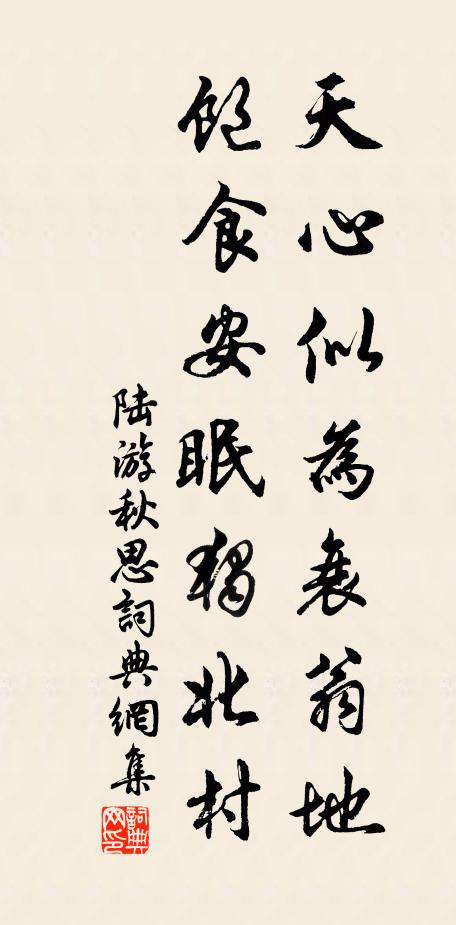 天心似為衰翁地
飽食安眠獨北村
陸游秋思詞典網集
詞典
网印